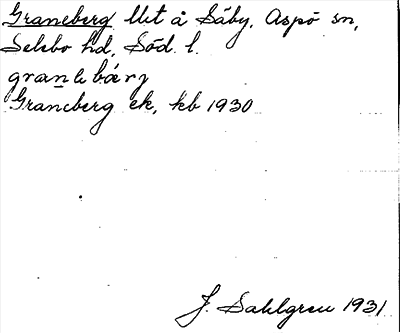 Graneberg llt å Säby, Aspö sn,
Selebo hd, Söd. l.
granebärj
Graneberg ek, kb 1930
J. Sahlgren 1931